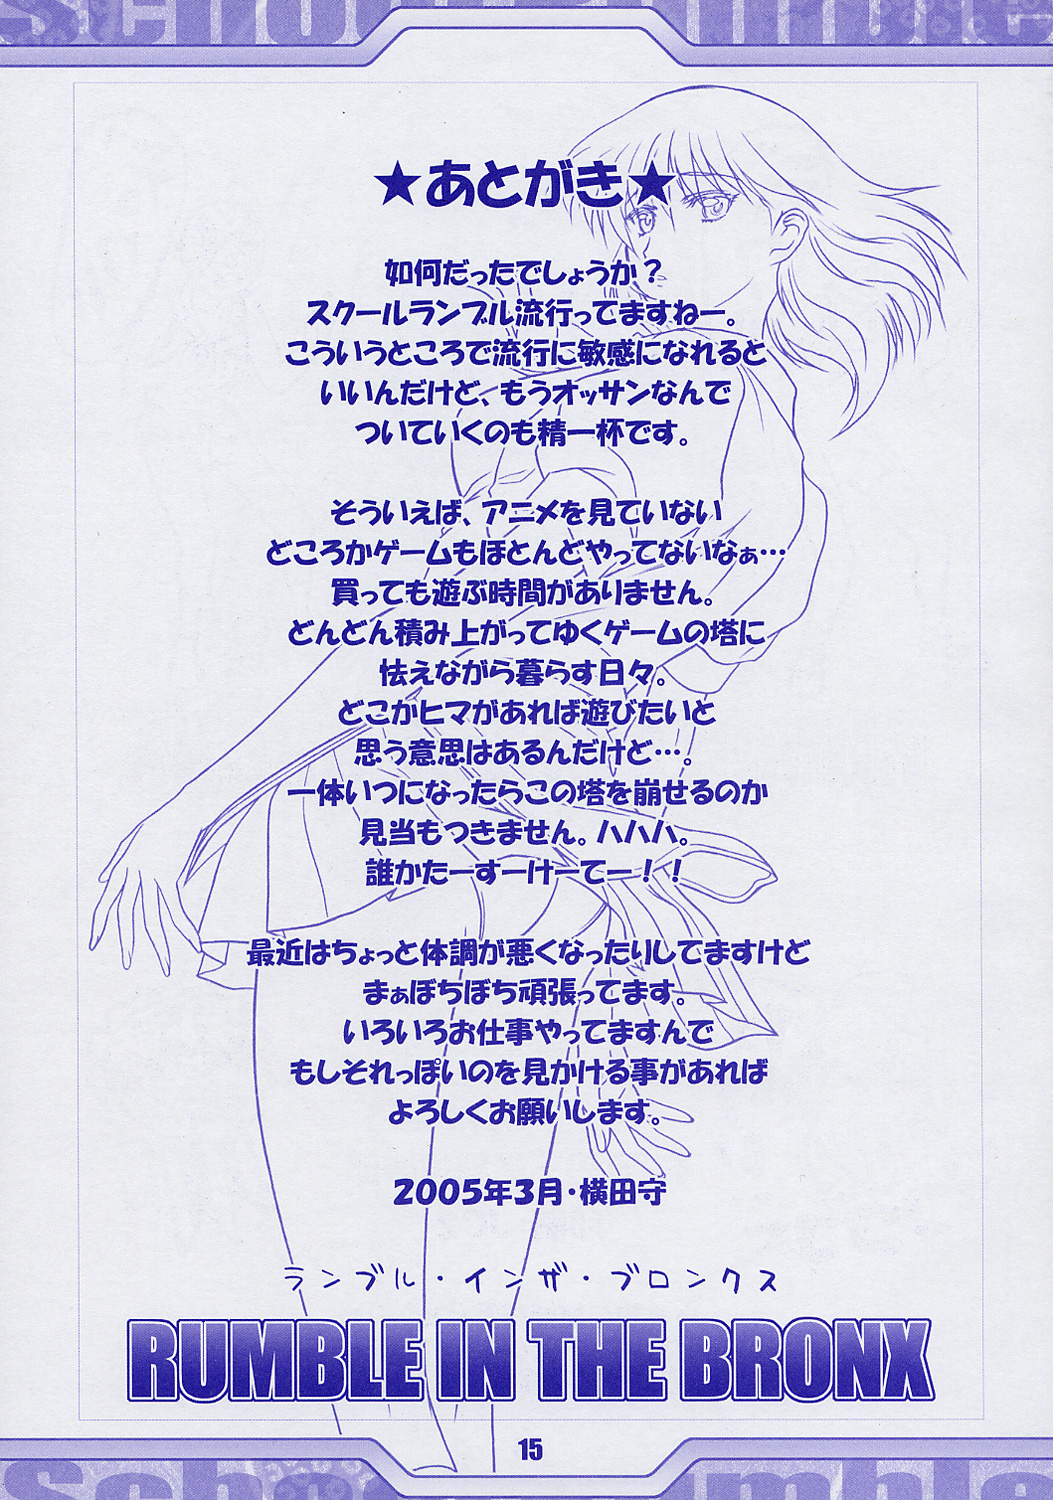 ★あとがき★
如何だったでしょうか？
スクールランブル流行ってますねー。
こういうところで流行に敏感になれると
いいんだけど、もうオッサンなんで
ついていくのも精一杯です。
そういえば、アニメを見ていない
どころかゲームもほとんどやってないなぁ…
買っても遊ぶ時間がありません。
どんどん積み上がってゆくゲームの塔に
怯えながら暮らす日々。
どこかヒマがあれば遊びたいと
思う意思はあるんだけど…。
一体いつになったらこの塔を崩せるのか
見当もつきません。ハハハ。
誰かたーすーけーてー！！
最近はちょっと体調が悪くなったりしてますけど
まぁぼちぼち頑張ってます。
いろいろお仕事やってますんで
もしそれっぽいのを見かける事があれば
よろしくお願いします。
2005年3月・横田守
ランブル・インザ・ブロンクス
RUMBLE IN THE BRONX
15